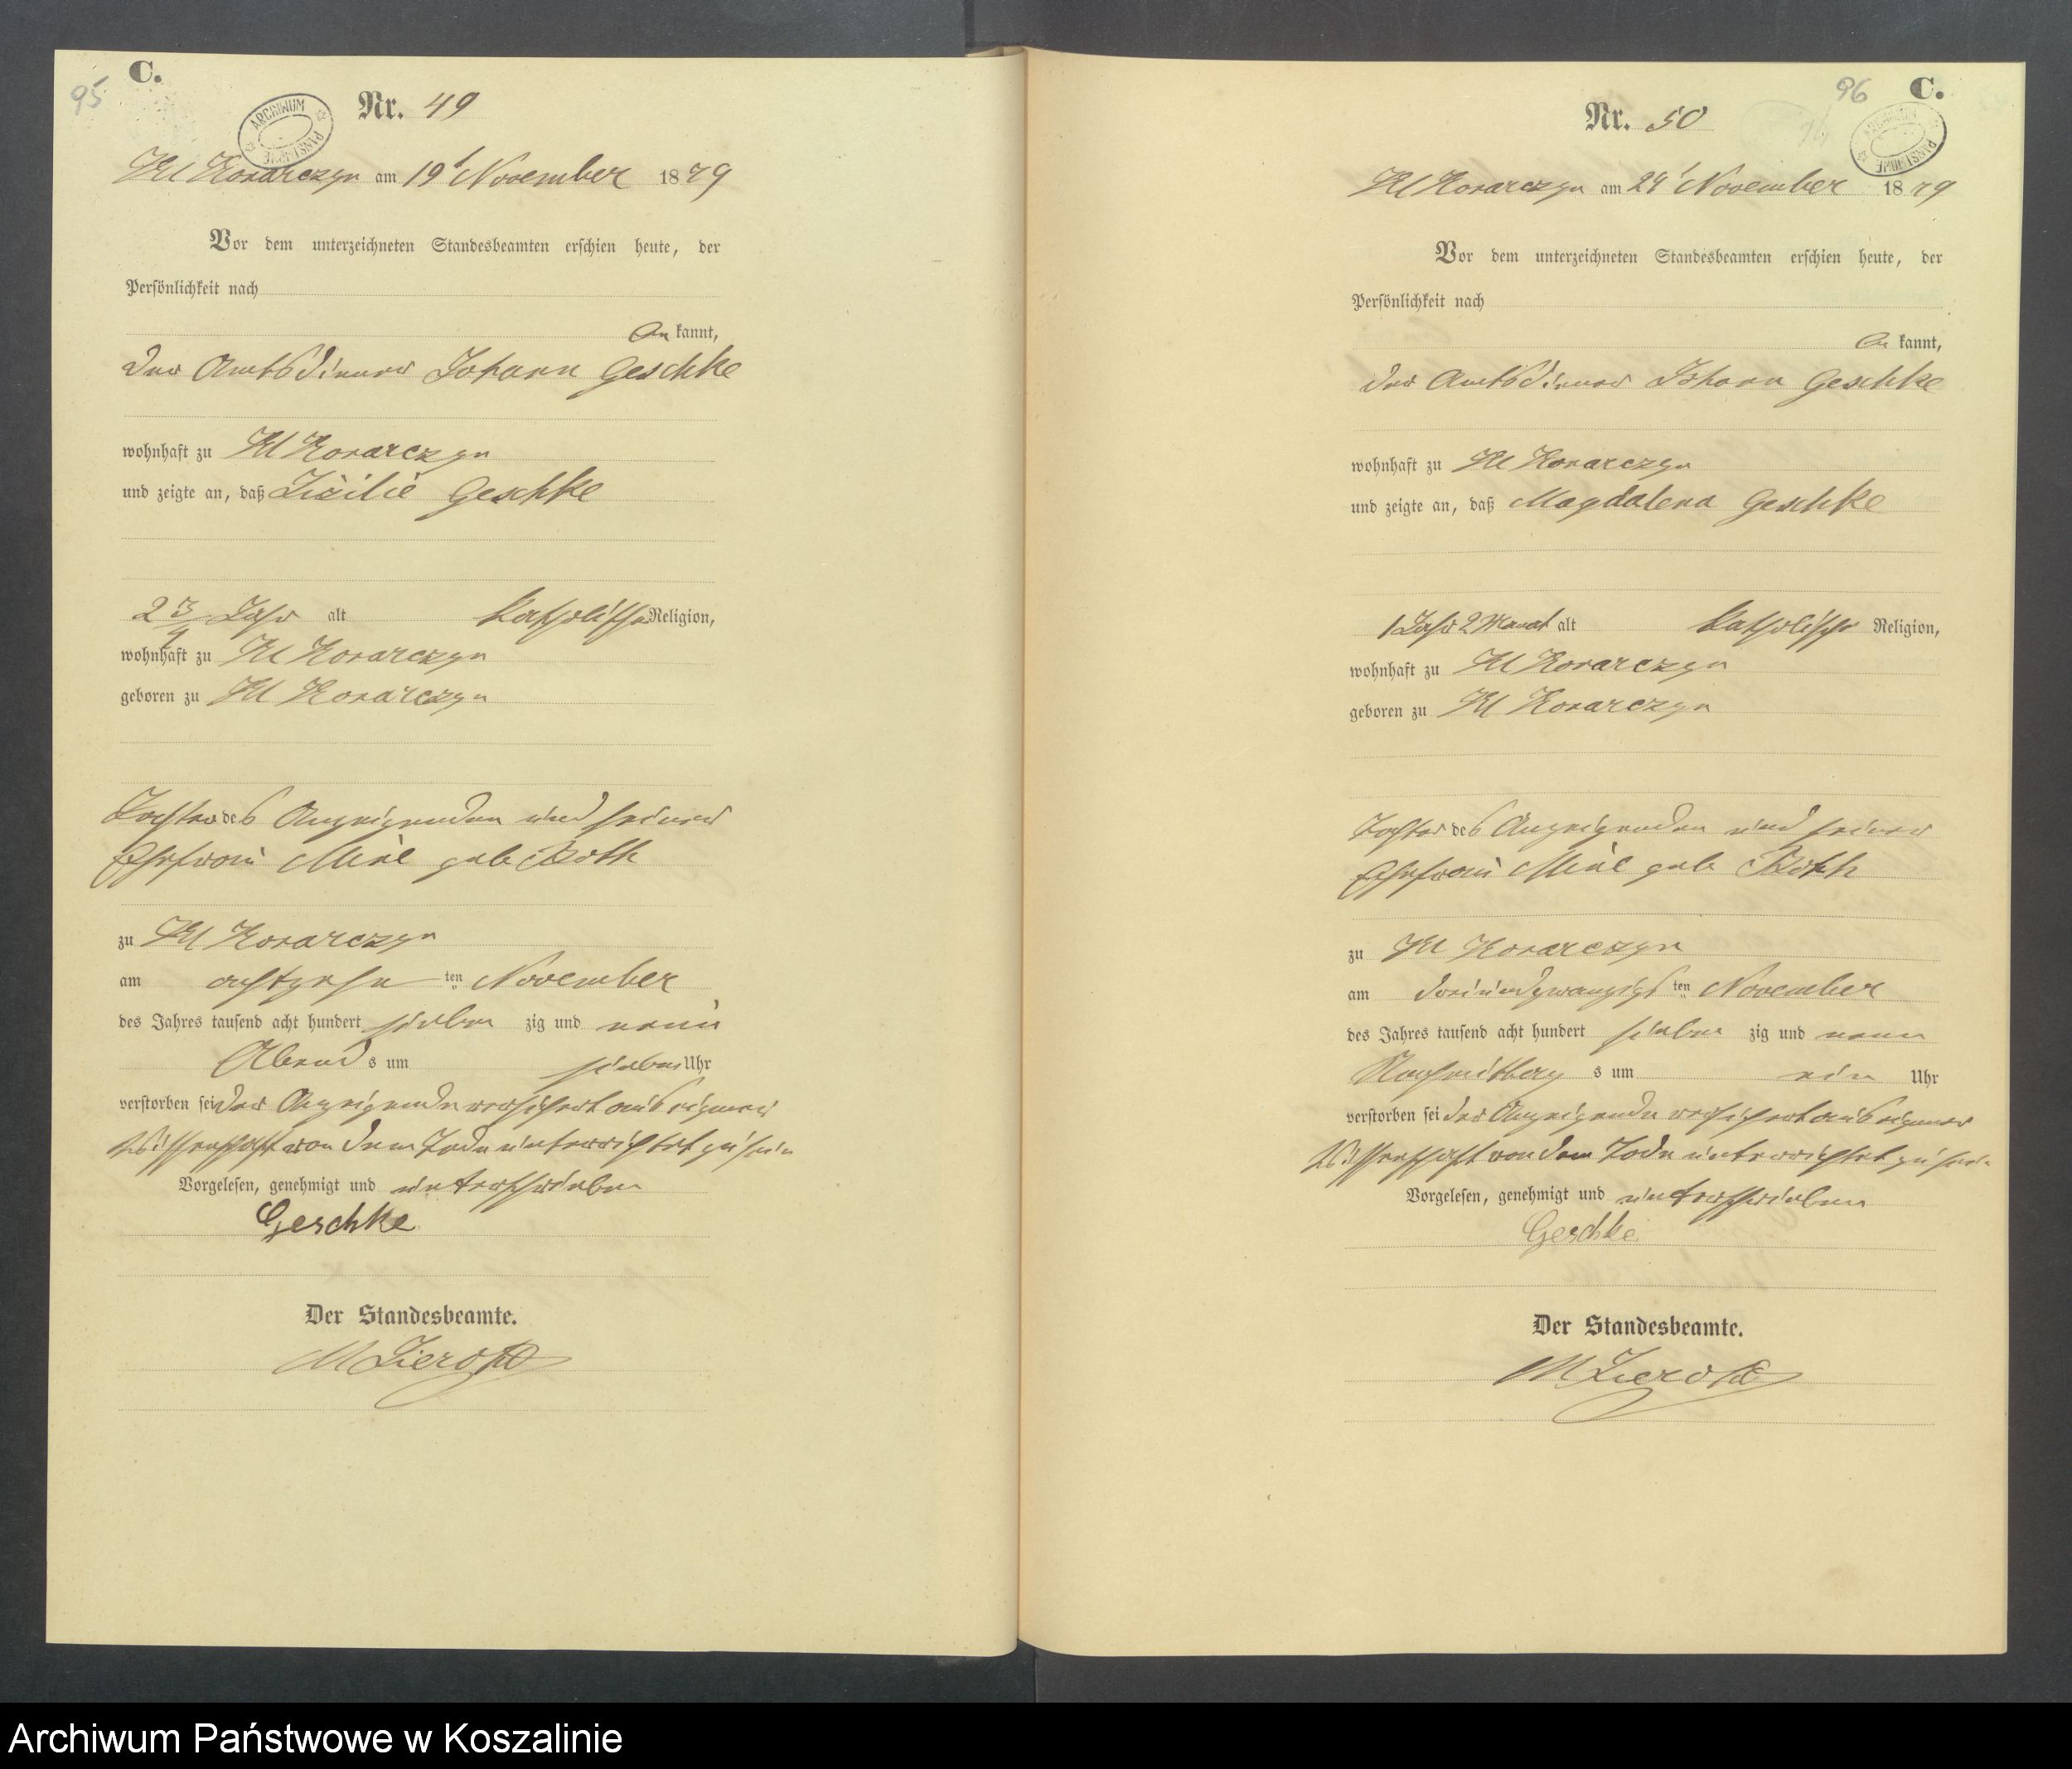 95
C.
ARCHIWUM PAŃSTWOWE
Nr. 49
Kl Konarczyn am 19t November 1879
Vor dem unterzeichneten Standesbeamten erschien heute, der
Persönlichkeit nach
be kannt,
der Amtsdiener Johann Geschke
wohnhaft zu Kl Konarczyn
und zeigte an, daß Geschke
2 3/4 Jahr alt katholischer Religion,
wohnhaft zu Kl Konarczyn
geboren zu Kl Konarczyn
Tochter des Anzeigenden und seiner
Ehefrau geb
zu Kl Konarczyn
am achtzehn ten November
des Jahres tausend acht hundert sieben zig und neun
Abend s um sieben Uhr
verstorben sei der Anzeigende versichert aus eigener
Wissenschaft von dem Tode unterrichtet zu sein
Vorgelesen, genehmigt und unterschrieben
Geschke
Der Standesbeamte.
96
C.
ARCHIWUM PAŃSTWOWE
Nr. 50
Kl Konarczyn am 24t November 1879
Vor dem unterzeichneten Standesbeamten erschien heute, der
Persönlichkeit nach
be kannt,
der Amtsdiener Johann Geschke
wohnhaft zu Kl Konarczyn
und zeigte an, daß Magdalena Geschke
1 Jahr 2 Monat alt katholischer Religion,
wohnhaft zu Kl Konarczyn
geboren zu Kl Konarczyn
Tochter des Anzeigenden und seiner
Ehefrau geb
zu Kl Konarczyn
am dreiundzwanzigs ten November
des Jahres tausend acht hundert sieben zig und neun
Nachmittag s um ein Uhr
verstorben sei der Anzeigende versichert aus eigener
Wissenschaft von dem Tode unterrichtet zu sein
Vorgelesen, genehmigt und unterschrieben
Geschke
Der Standesbeamte.
Archiwum Państwowe w Koszalinie